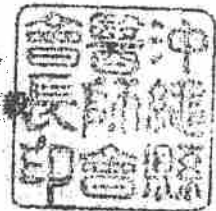 沖縄縣
醫師會
會長印